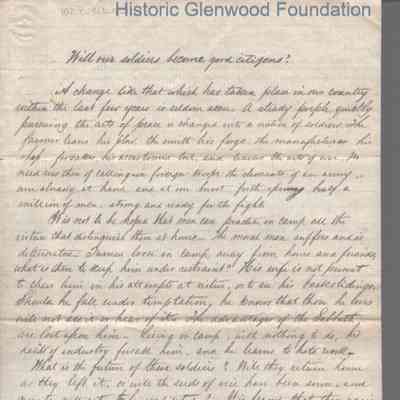 Historic Glenwood Foundation
Will our soldiers become good citizens?
A change like that which has taken place in our country
within the last few years is seldom seen. A steady people, quietly
pursuing the arts of peace is changed into a nation of soldiers. The
farmer leaves his plow, the smith his forge, the manufacturer his
shop, forsakes his
need was there of calling in foreign troops, the elements of an army
are already at hand, and at once burst forth half a
million of men, strong and ready for the fight.
It is not to be hoped that men can practise in camp all the
virtues that distinguish them at home. The moral man suffers and is
deteriorated. Turned loose in camp, away from home and friends,
what is there to keep him under restraint? His wife is not present
to cheer him in his attempts at virtue, or to see his backslidings.
Should he fall under temptation, he knows that those he loves
will not see it or hear of it. The advantages of the Sabbath
are lost upon him. Living in camp, with nothing to do, his
habits of industry forsake him, and he learns to hate work.
What is the future of these soldiers? Will they return home
as they left it, or will the seeds of vice have been sown, and